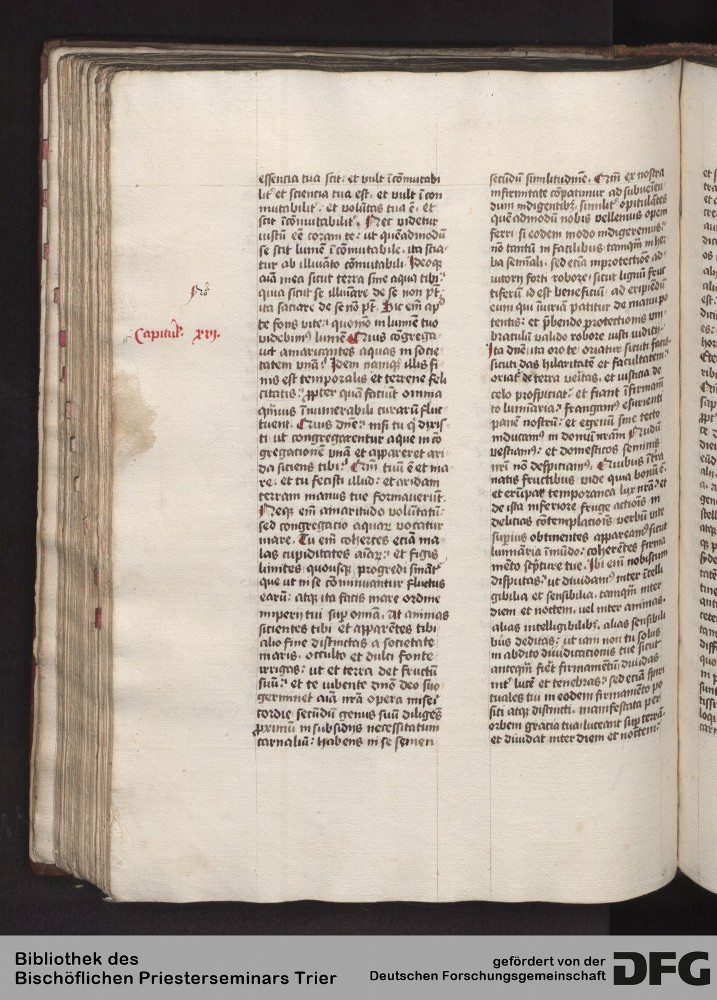 essencia tua scit: et vult īcōmutabi
lit̉ et scientia tua est. et vult ī con
mutabilit̉. et volūtas tua ē. et
scit īcōmutabilit̉. Nec videtur
iustū eē coram te: ut quēadmodū
se scit lumē īcōmutabile. ita scia
tur ab illuīato cōmutabili. Ideoqꝫ
aīa mea sicut terra sine aqua tibi:
quia sicut se illuīare de se non pt̄.
ita saciare de se nō pt̄. Sic em̄ apᵈ
te fons vite: quomō in lumīe tuo
videbimꝰ lumē Quis congrega
vit amaricantes aquas in socie
tatem vnā: Idem namqꝫ illis fi
nis est temporalis et terrene feli
citatis: ꝓpter quā faciūt omnia
qm̄uis īnumerabili curarū fluc
tuent. Quis dn̄e: nisi tu q̇ dixis
ti ut congregarentur aque in cō
gregacionē vnā et appareret ari
da siciens tibi: Qm̄ tuū ē et ma
re. et tu fecisti illud: et aridam
terram manus tue formauerūt.
Neqꝫ em̄ amaritudo volūtatū:
sed congregacio aquaꝝ vocatur
mare. Tu em̄ cohērces eciā ma
las cupiditates aīaꝝ: et figis
limites quousqꝫ progredi sinant̉
que ut in se cōminuantur fluctus
earū: atqꝫ ita facis mare ordine
imperij tui suꝑ omnia. At animas
sicientes tibi et apparētes tibi
alio fine distinctas a societate
maris. occulto et dulci fonte
irrigas: ut et terra det fructū
suū: et te iubente dn̄o deo suo
germinet aīa nr̄a opera miseri
cordie secūdū genus suū diligēs
ꝓximū in subsidijs necessitatum
carnaliū: habens in se semen
Capitulꝫ XVI.
secūdū similitudinē. Qm̄ ex nostra
infirmitate cōpatimur ad subueniē
dum indigentibꝫ. similit̉ opitulātes
quēadmodū nobis vellemus opem
ferri. si eodem modo indigeremus:
nō tantū in facilibus tamqm̄ in her
ba semīali. sed eciā in protectiōe ad
iutorij forti robore. sicut lignū fruc
tiferū id est beneficū ad eripiēdū
eum qui iniuriā patitur de manu po
tentis: et p̄bendo protectionis um
braculū valido robore iusti iudicij.
Ita dn̄e ita oro te. oriatur sicuti facis.
sicuti das hilaritatē et facultatem:
oriat̉ de terra veritas. et iusticia de
celo prospiciat: et fiant ī firmamē
to luminaria: frangamꝰ esurienti
panē nostrū: et egenū sine tecto
inducamꝰ in domū nr̄am. Nudū
vestiamꝰ: et domesticos seminis
nr̄i nō despiciamꝰ. Quibus ī terra
natis fructibus vide quia bonū ē.
et erūpat temporanea lux nr̄a: et
de ista inferiore fruge actiōis in
delicias cōtemplacionis verbū vite
suꝑius obtinentes appareamꝰ sicut
luminaria ī mūdo: coherētes firma
mēto sc̄pture tue. Ibi em̄ nobiscum
disputas: ut diuidamꝰ inter ītelli
gibilia et sensibilia. tamqm̄ inter
diem et noctem. uel inter animas.
alias intelligibilibꝫ. alias sensibili
bus deditas: ut iam non tu solus
in abdito diiudicationis tue sicut
anteqm̄ fieret firmamētū diuidas
int̉ lucē et tenebras: sed eciā spiri
tuales tui in eodem firmamēto po
siti atqꝫ distincti. manifestata per
orbem gracia tua: luceant suꝑ terrā.
et diuidat inter diem et noctem:
Bibliothek des
Bischöflichen Priesterseminars Trier
gefördert von der
Deutschen Forschungsgemeinschaft
DFG